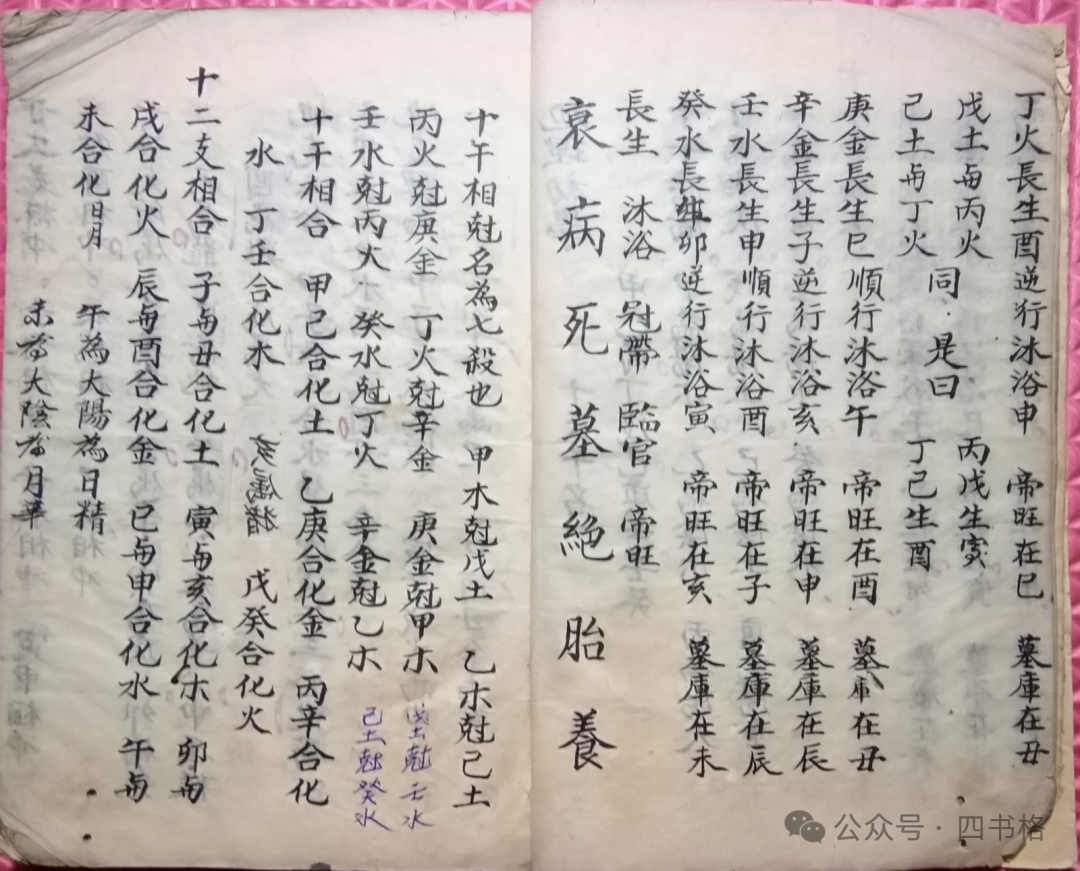 丁火長生酉逆行沐浴申　帝旺在巳　墓庫在丑
戊土与丙火
己土与丁火
同　是曰
丙戊生寅
丁己生酉
庚金長生巳順行沐浴午　帝旺在酉　墓庫在丑
辛金長生子逆行沐浴亥　帝旺在申　墓庫在辰
壬水長生申順行沐浴酉　帝旺在子　墓庫在辰
癸水長生卯逆行沐浴寅　帝旺在亥　墓庫在未
長生　沐浴　冠帶　臨官　帝旺
衰　病　死　墓　絕　胎　養
十午相尅名為七殺也　甲木尅戊土　乙木尅己土
丙火尅庚金　丁火尅辛金　庚金尅甲木　戊土尅壬水
壬水尅丙火　癸水尅丁火　辛金尅乙木　己土尅癸水
十干相合　甲己合化土　乙庚合化金　丙辛合化
水　丁壬合化木　亥属猪　戊癸合化火
十二支相合　子与丑合化土　寅与亥合化木　卯与
戌合化火　辰与酉合化金　巳与申合化水　午与
未合化日月　午為大陽為日精
未為大陰為月華
公众号·四书格